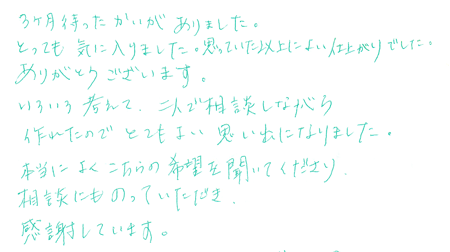 3ヶ月待ったかいがありました。
とっても気に入りました。思っていた以上によい仕上がりでした。
ありがとうございます。
いろいろ考えて、二人で相談しながら
作れたのでとてもよい思い出になりました。
本当によくこちらの希望を聞いてくださり、
相談にものっていただき、
感謝しています。